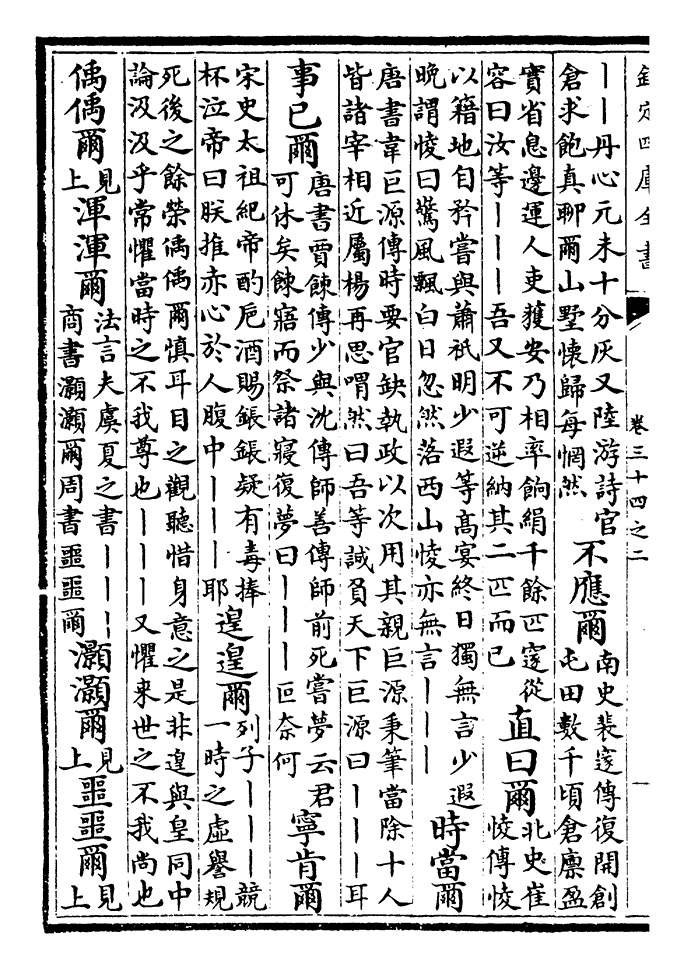 欽定四庫全書 卷三十四之二
丨丨丹心元未十分灰又陸游詩官
倉求飽真聊爾山墅懷歸每惘然
不應爾
南史裴邃傳復開創
屯田數千頃倉廩盈
實省息邊運人吏獲安乃相率餉絹千餘匹邃從
容曰汝等丨丨丨吾又不可逆納其二匹而已
直曰爾
北史崔
㥄傳㥄
以籍地自矜嘗與蕭祇明少遐等高宴終日獨無言少遐
晚謂㥄曰驚風飄白日忽然落西山㥄亦無言丨丨丨
時當爾
唐書韋巨源傳時要官缺執政以次用其親巨源秉筆當除十人
皆諸宰相近屬楊再思喟然曰吾等誠負天下巨源曰丨丨丨耳
事已爾
唐書賈餗傳少與沈傳師善傳師前死嘗夢云君
可休矣餗寤而祭諸寢復夢曰丨丨丨叵奈何
寧肯爾
宋史太祖紀帝酌巵酒賜鋹鋹疑有毒捧
杯泣帝曰朕推赤心於人腹中丨丨丨耶
遑遑爾
列子丨丨丨競
一時之虛譽規
死後之餘榮偊偊爾慎耳目之觀聽惜身意之是非遑與皇同中
論汲汲乎常懼當時之不我尊也丨丨丨又懼來世之不我尚也
偊偊爾
見上
渾渾爾
法言夫虞夏之書丨丨丨
商書灝灝爾周書噩噩爾
灝灝爾
見上
噩噩爾
見上